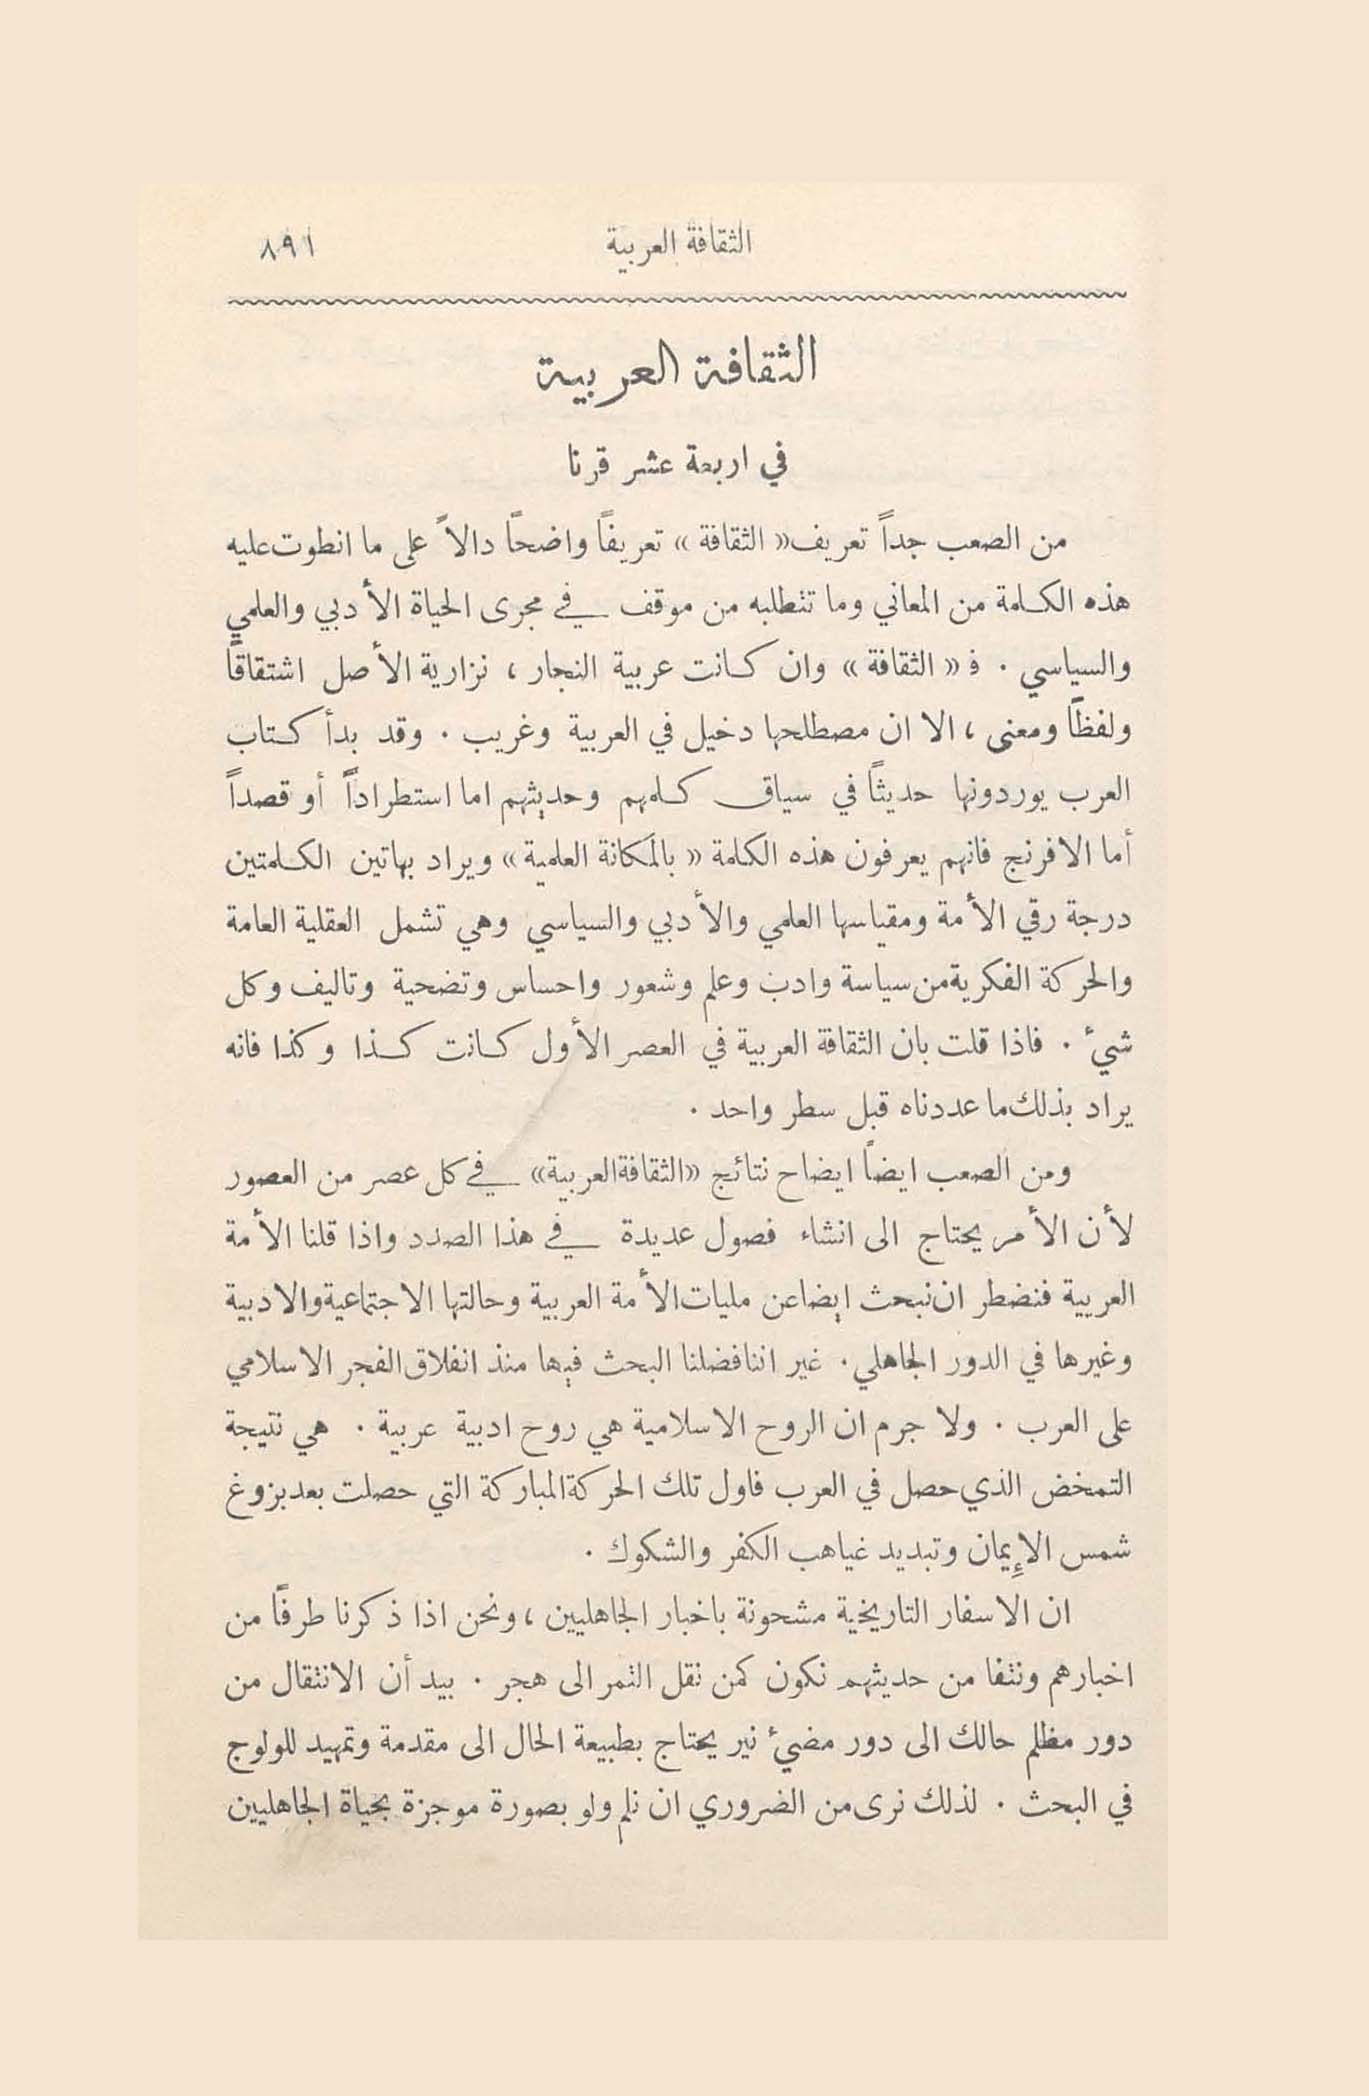 الثقافة العربية ٨٩١
الثقافة العربية
في اربعة عشر قرنا
من الصعب جداً تعريف « الثقافة » تعريفاً واضحاً دالاً على ما انطوت عليه
هذه الكلمة من المعاني وما تتطلبه من موقف في مجرى الحياة الأدبي والعلمي
والسياسي . فـ « الثقافة » وان كانت عربية النجار ، نزارية الأصل اشتقاقاً
ولفظاً ومعنى ، الا ان مصطلحها دخيل في العربية وغريب . وقد بدأ كتاب
العرب يوردونها حديثاً في سياق كلمهم وحديثهم اما استطراداً أو قصداً
أما الافرنج فانهم يعرفون هذه الكلمة « بالمكانة العلمية » ويراد بهاتين الكلمتين
درجة رقي الأمة ومقياسها العلمي والأدبي والسياسي وهي تشمل العقلية العامة
والحركة الفكرية من سياسة وادب وعلم وشعور واحساس وتضحية وتاليف وكل
شيء . فاذا قلت بان الثقافة العربية في العصر الأول كانت كذا وكذا فانه
يراد بذلك ما عددناه قبل سطر واحد .
ومن الصعب ايضاً ايضاح نتائج « الثقافة العربية » في كل عصر من العصور
لأن الأمر يحتاج الى انشاء فصول عديدة في هذا الصدد واذا قلنا الأمة
العربية فنضطر ان نبحث ايضا عن مليات الأمة العربية وحالتها الاجتماعية والادبية
وغيرها في الدور الجاهلي . غير اننا فضلنا البحث فيها منذ انفلاق الفجر الاسلامي
على العرب . ولا جرم ان الروح الاسلامية هي روح ادبية عربية . هي نتيجة
التمخض الذي حصل في العرب فاول تلك الحركة المباركة التي حصلت بعد بزوغ
شمس الإيمان وتبديد غياهب الكفر والشكوك .
ان الاسفار التاريخية مشحونة باخبار الجاهليين ، ونحن اذا ذكرنا طرفاً من
اخبارهم ونتفا من حديثهم نكون كمن نقل التمر الى هجر . بيد أن الانتقال من
دور مظلم حالك الى دور مضيء نير يحتاج بطبيعة الحال الى مقدمة وتمهيد للولوج
في البحث . لذلك نرى من الضروري ان نلم ولو بصورة موجزة بحياة الجاهليين